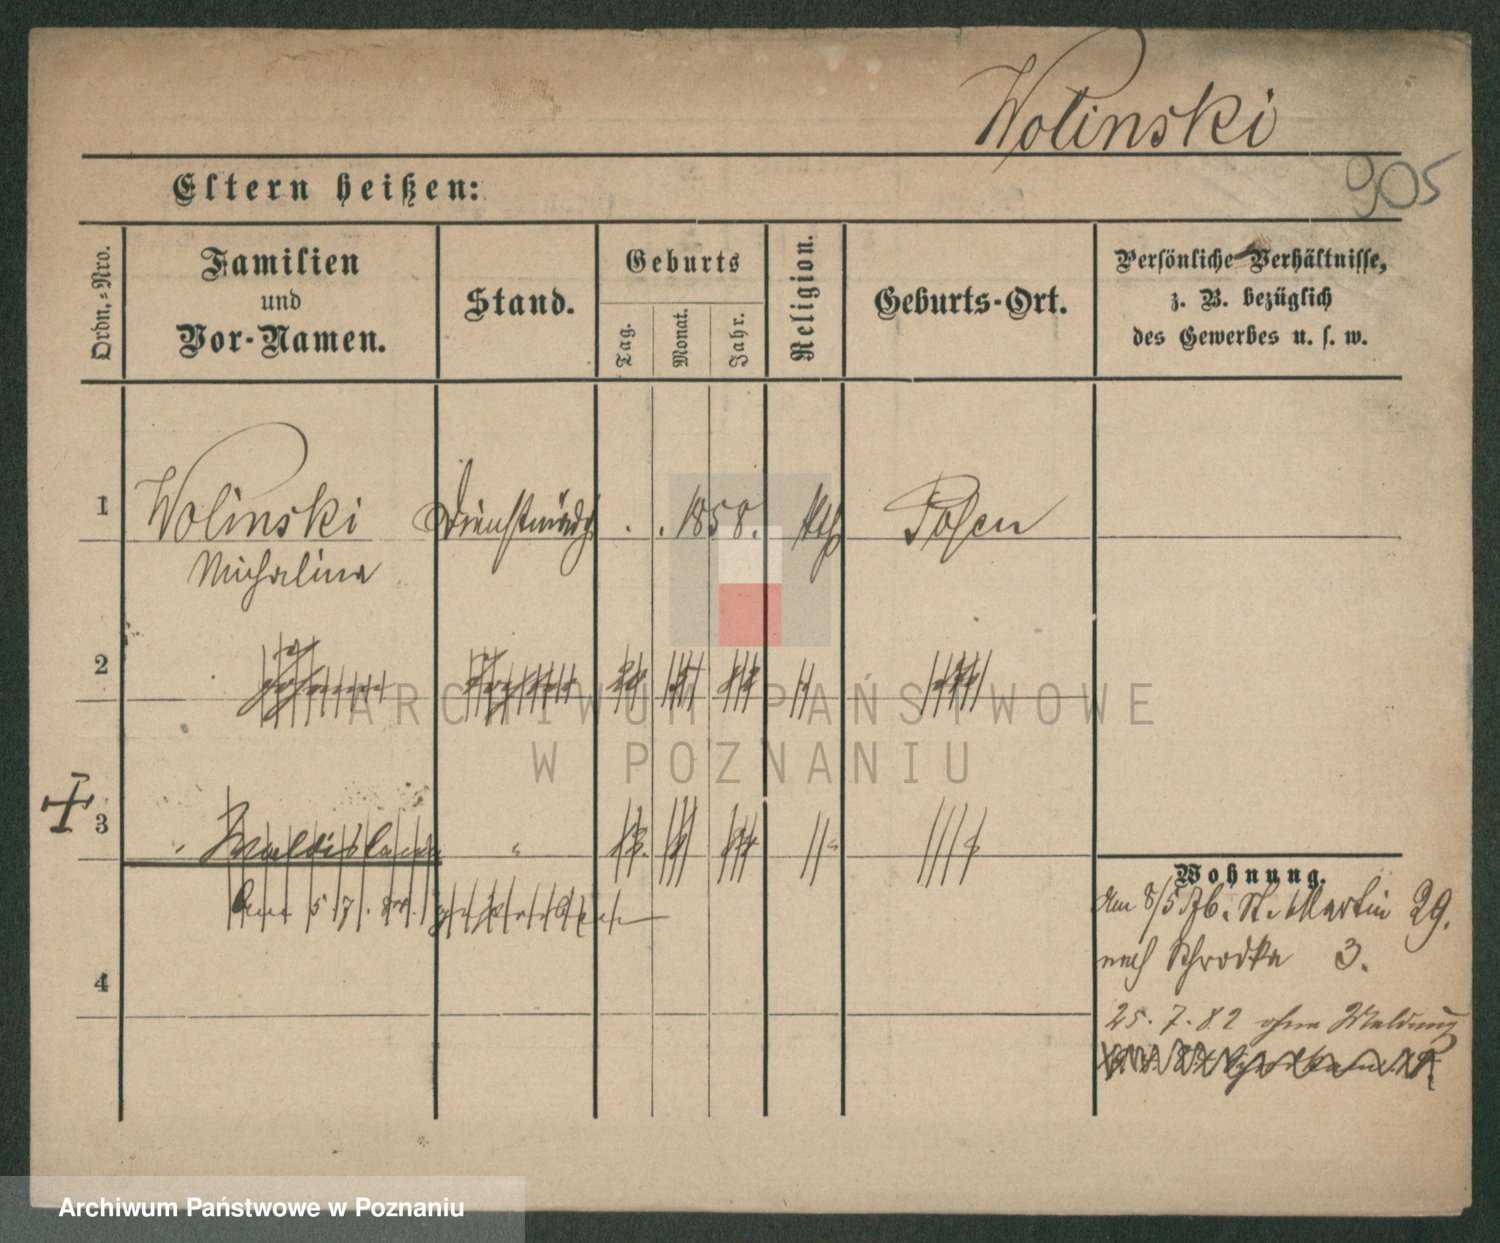 Wolinski
905
Eltern heißen:
Ordn.-Nro.
Familien
und
Vor-Namen.
Stand.
Geburts
Tag.
Monat.
Jahr.
Religion.
Geburts-Ort.
Persönliche Verhältnisse,
z. B. bezüglich
des Gewerbes u. s. w.
1 Wolinski Dienstmädch . . 1858. kth Posen
Michalina
2
3
Wohnung.
Am 8/5 St. Martin 29.
nach Schrodka 3.
4
25. 7. 82 ohne Meldung
ARCHIWUM PAŃSTWOWE
W POZNANIU
Archiwum Państwowe w Poznaniu